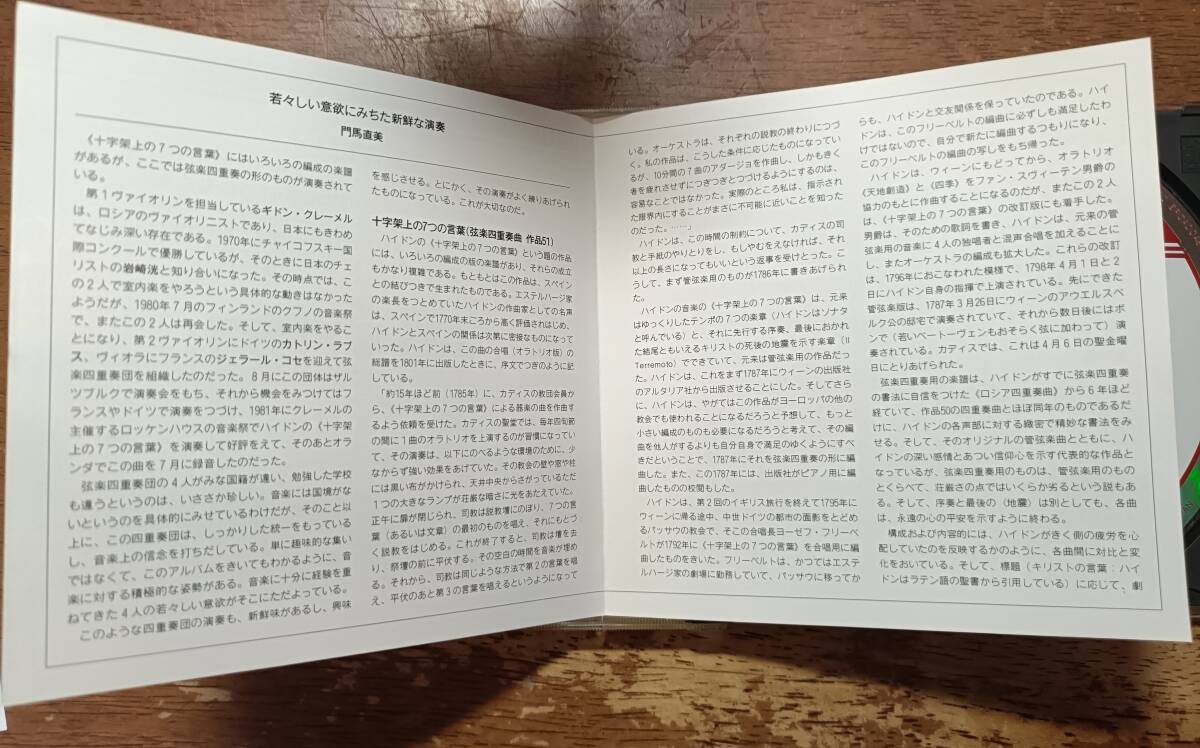 若々しい意欲にみちた新鮮な演奏
門馬直美
《十字架上の7つの言葉》にはいろいろの編成の楽譜
があるが、ここでは弦楽四重奏の形のものが演奏されて
いる。
第1ヴァイオリンを担当しているギドン・クレーメル
は、ロシアのヴァイオリニストであり、日本にもきわめ
てなじみ深い存在である。1970年にチャイコフスキー国
際コンクールで優勝しているが、そのときに日本のチェ
リストの岩崎洸と知り合いになった。その時点では、こ
の2人で室内楽をやろうという具体的な動きはなかった
ようだが、1980年7月のフィンランドのクフノの音楽祭
で、またこの2人は再会した。そして、室内楽をやるこ
とになり、第2ヴァイオリンにドイツのカトリン・ラブ
ス、ヴィオラにフランスのジェラール・コセを迎えて弦
楽四重奏団を組織したのだった。8月にこの団体はザル
ツブルクで演奏会をもち、それから機会をみつけてはフ
ランスやドイツで演奏をつづけ、1981年にクレーメルの
主催するロッケンハウスの音楽祭でハイドンの《十字架
上の7つの言葉》を演奏して好評をえて、そのあとオラ
ンダでこの曲を7月に録音したのだった。
弦楽四重奏団の4人がみな国籍が違い、勉強した学校
も違うというのは、いささか珍しい。音楽には国境がな
いというのを具体的にみせているわけだが、そのこと以
上に、この四重奏団は、しっかりした統一をもっている
し、音楽上の信念を打ちだしている。単に趣味的な集い
ではなくて、このアルバムをきいてもわかるように、音
楽に対する積極的な姿勢がある。音楽に十分に経験を重
ねてきた4人の若々しい意欲がそこにただよっている。
このような四重奏団の演奏も、新鮮味があるし、興味
を感じさせる。とにかく、その演奏がよく練りあげられ
たものになっている。これが大切なのだ。
十字架上の7つの言葉(弦楽四重奏曲 作品51)
ハイドンの《十字架上の7つの言葉》という題の作品
には、いろいろの編成の版の楽譜があり、それらの成立
もかなり複雑である。もともとはこの作品は、スペイン
との結びつきで生まれたものである。エステルハージ家
の楽長をつとめていたハイドンの作曲家としての名声
は、スペインで1770年末ごろから高く評価されはじめ、
ハイドンとスペインの関係は次第に密接なものになって
いった。ハイドンは、この曲の合唱(オラトリオ版)の
総譜を1801年に出版したときに、序文でつぎのように記
している。
「約15年ほど前(1785年)に、カディスの教団会員か
ら、《十字架上の7つの言葉》による器楽の曲を作曲す
るよう依頼を受けた。カディスの聖堂では、毎年四旬節
の間に1曲のオラトリオを上演するのが習慣になってい
て、その演奏は、以下にのべるような環境のために、少
なからず強い効果をあげていた。その教会の壁や窓や柱
には黒い布がかけられ、天井中央からさがっているただ
1つの大きなランプが荘厳な暗さに光をあたえていた。
正午に扉が閉じられ、司教は説教壇にのぼり、7つの言
葉(あるいは文章)の最初のものを唱え、それにもとづ
く説教をはじめる。これが終了すると、司教は壇を去
り、祭壇の前に平伏する。その空白の時間を音楽が埋め
る。それから、司教は同じような方法で第2の言葉を唱
え、平伏のあと第3の言葉を唱えるというようになって
いる。オーケストラは、それぞれの説教の終わりにつづ
く。私の作品は、こうした条件に応じたものになってい
るが、10分間の7曲のアダージョを作曲し、しかもきく
者を疲れさせずにつぎつぎとつづけるようにするのは、
容易なことではなかった。実際のところ私は、指示され
た限界内にすることがまさに不可能に近いことを知った
のだった。……」
ハイドンは、この時間の制約について、カディスの司
教と手紙のやりとりをし、もしやむをえなければ、それ
以上の長さになってもいいという返事を受けとった。こ
うして、まず管弦楽用のものが1786年に書きあげられ
た。
ハイドンの音楽の《十字架上の7つの言葉》は、元来
はゆっくりしたテンポの7つの楽章(ハイドンはソナタ
と呼んでいる)と、それに先行する序奏、最後におかれ
た結尾ともいえるキリストの死後の地震を示す楽章(Il
Terremoto)でできていて、元来は管弦楽用の作品だっ
た。ハイドンは、これをまず1787年にウィーンの出版社
のアルタリア社から出版させることにした。そしてさら
に、ハイドンは、やがてはこの作品がヨーロッパの他の
教会でも使われることになるだろうと予想して、もっと
小さい編成のものも必要になるだろうと考えて、その編
曲を他人がするよりも自分自身で満足のゆくようにすべ
きだということで、1787年にそれを弦楽四重奏の形に編
曲した。また、この1787年には、出版社がピアノ用に編
曲したものの校閲もした。
ハイドンは、第2回のイギリス旅行を終えて1795年に
ウィーンに帰る途中、中世ドイツの都市の面影をとどめ
るパッサウの教会で、そこの合唱長ヨーゼフ・フリーベ
ルトが1792年に《十字架上の7つの言葉》を合唱用に編
曲したものをきいた。フリーベルトは、かつてはエステ
ルハージ家の劇場に勤務していて、パッサウに移ってか
らも、ハイドンと交友関係を保っていたのである。ハイ
ドンは、このフリーベルトの編曲に必ずしも満足したわ
けではないので、自分で新たに編曲するつもりになり、
このフリーベルトの編曲の写しをもち帰った。
ハイドンは、ウィーンにもどってから、オラトリオ
《天地創造》と《四季》をファン・スヴィーテン男爵の
協力のもとに作曲することになるのだが、またこの2人
は、《十字架上の7つの言葉》の改訂版にも着手した。
男爵は、そのための歌詞を書き、ハイドンは、元来の管
弦楽用の音楽に4人の独唱者と混声合唱を加えることに
し、またオーケストラの編成も拡大した。これらの改訂
は、1796年におこなわれた模様で、1798年4月1日と2
日にハイドン自身の指揮で上演されている。先にできた
管弦楽版は、1787年3月26日にウィーンのアウエルスペ
ルク公の邸宅で演奏されていて、それから数日後にはボ
ンで(若いベートーヴェンもおそらく弦に加わって)演
奏されている。カディスでは、これは4月6日の聖金曜
日にとりあげられた。
弦楽四重奏用の楽譜は、ハイドンがすでに弦楽四重奏
の書法に自信をつけた《ロシア四重奏曲》から6年ほど
経ていて、作品50の四重奏曲とほぼ同年のものであるだ
けに、ハイドンの各声部に対する緻密で精妙な書法をみ
せる。そして、そのオリジナルの管弦楽曲とともに、ハ
イドンの深い感情とあつい信仰心を示す代表的な作品と
なっているが、弦楽四重奏用のものは、管弦楽用のもの
とくらべて、荘厳さの点ではいくらか劣るという説もあ
る。そして、序奏と最後の〈地震〉は別としても、各曲
は、永遠の心の平安を示すように終わる。
構成および内容的には、ハイドンがきく側の疲労を心
配していたのを反映するかのように、各曲間に対比と変
化をおいている。そして、標題(キリストの言葉:ハイ
ドンはラテン語の聖書から引用している)に応じて、劇